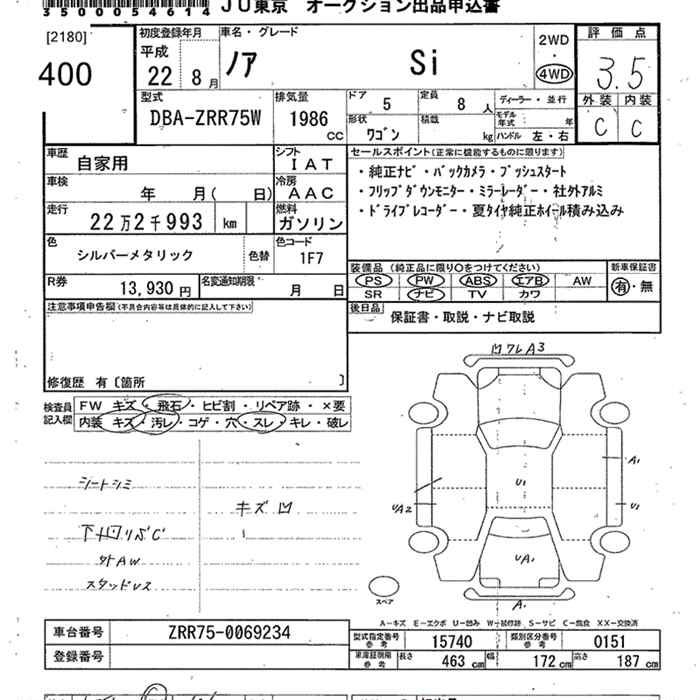 3500054614 JU東京 オークション出品申込書
[2180]
400
初度登録年月
平成
22 8月
車名・グレード
ノア Si
2WD
・
4WD
評価点
3.5
外装 内装
C C
型式
DBA-ZRR75W
排気量
1986 CC
ドア 5
定員 8人
形状 ワゴン
積載 kg
ディーラー・並行
モデル年式 年
ハンドル 左・右
車歴 自家用
シフト IAT
車検 年 月( 日)
冷房 AAC
走行 22万2千993 km
燃料 ガソリン
色 シルバーメタリック 色替
色コード 1F7
R券 13,930円
名変通知期限 月 日
セールスポイント(正常に機能するものに限ります)
・純正ナビ・バックカメラ・プッシュスタート
・フリップダウンモニター・ミラーレーダー・社外アルミ
・ドライブレコーダー・夏タイヤ純正ホイール積み込み
装備品(純正品に限り〇をつけてください)
PS PW ABS エアB AW
SR ナビ TV カワ
新車保証書
有・無
後日品 保証書・取説・ナビ取説
注意事項申告欄(不具合内容等は具体的に記入して下さい)
修復歴 有〔箇所 〕
検査員記入欄
FW キズ・飛石・ヒビ割・リペア跡・×要
内装 キズ・汚レ・コゲ・穴・スレ・キレ・破レ
シートシミ
キズ凹
下廻りサビC
外AW
スタッドレス
凹ワレA3
A1
U1
UA2
U1
UA1
A1
スペア
A-キズ E-エクボ U-凹み W-補修跡 S-サビ C-腐食 XX-交換済
車台番号 ZRR75-0069234
登録番号
型式指定番号 参考 15740
類別区分番号 参考 0151
車庫証明用 参考 長さ 463cm 幅 172cm 高さ 187cm